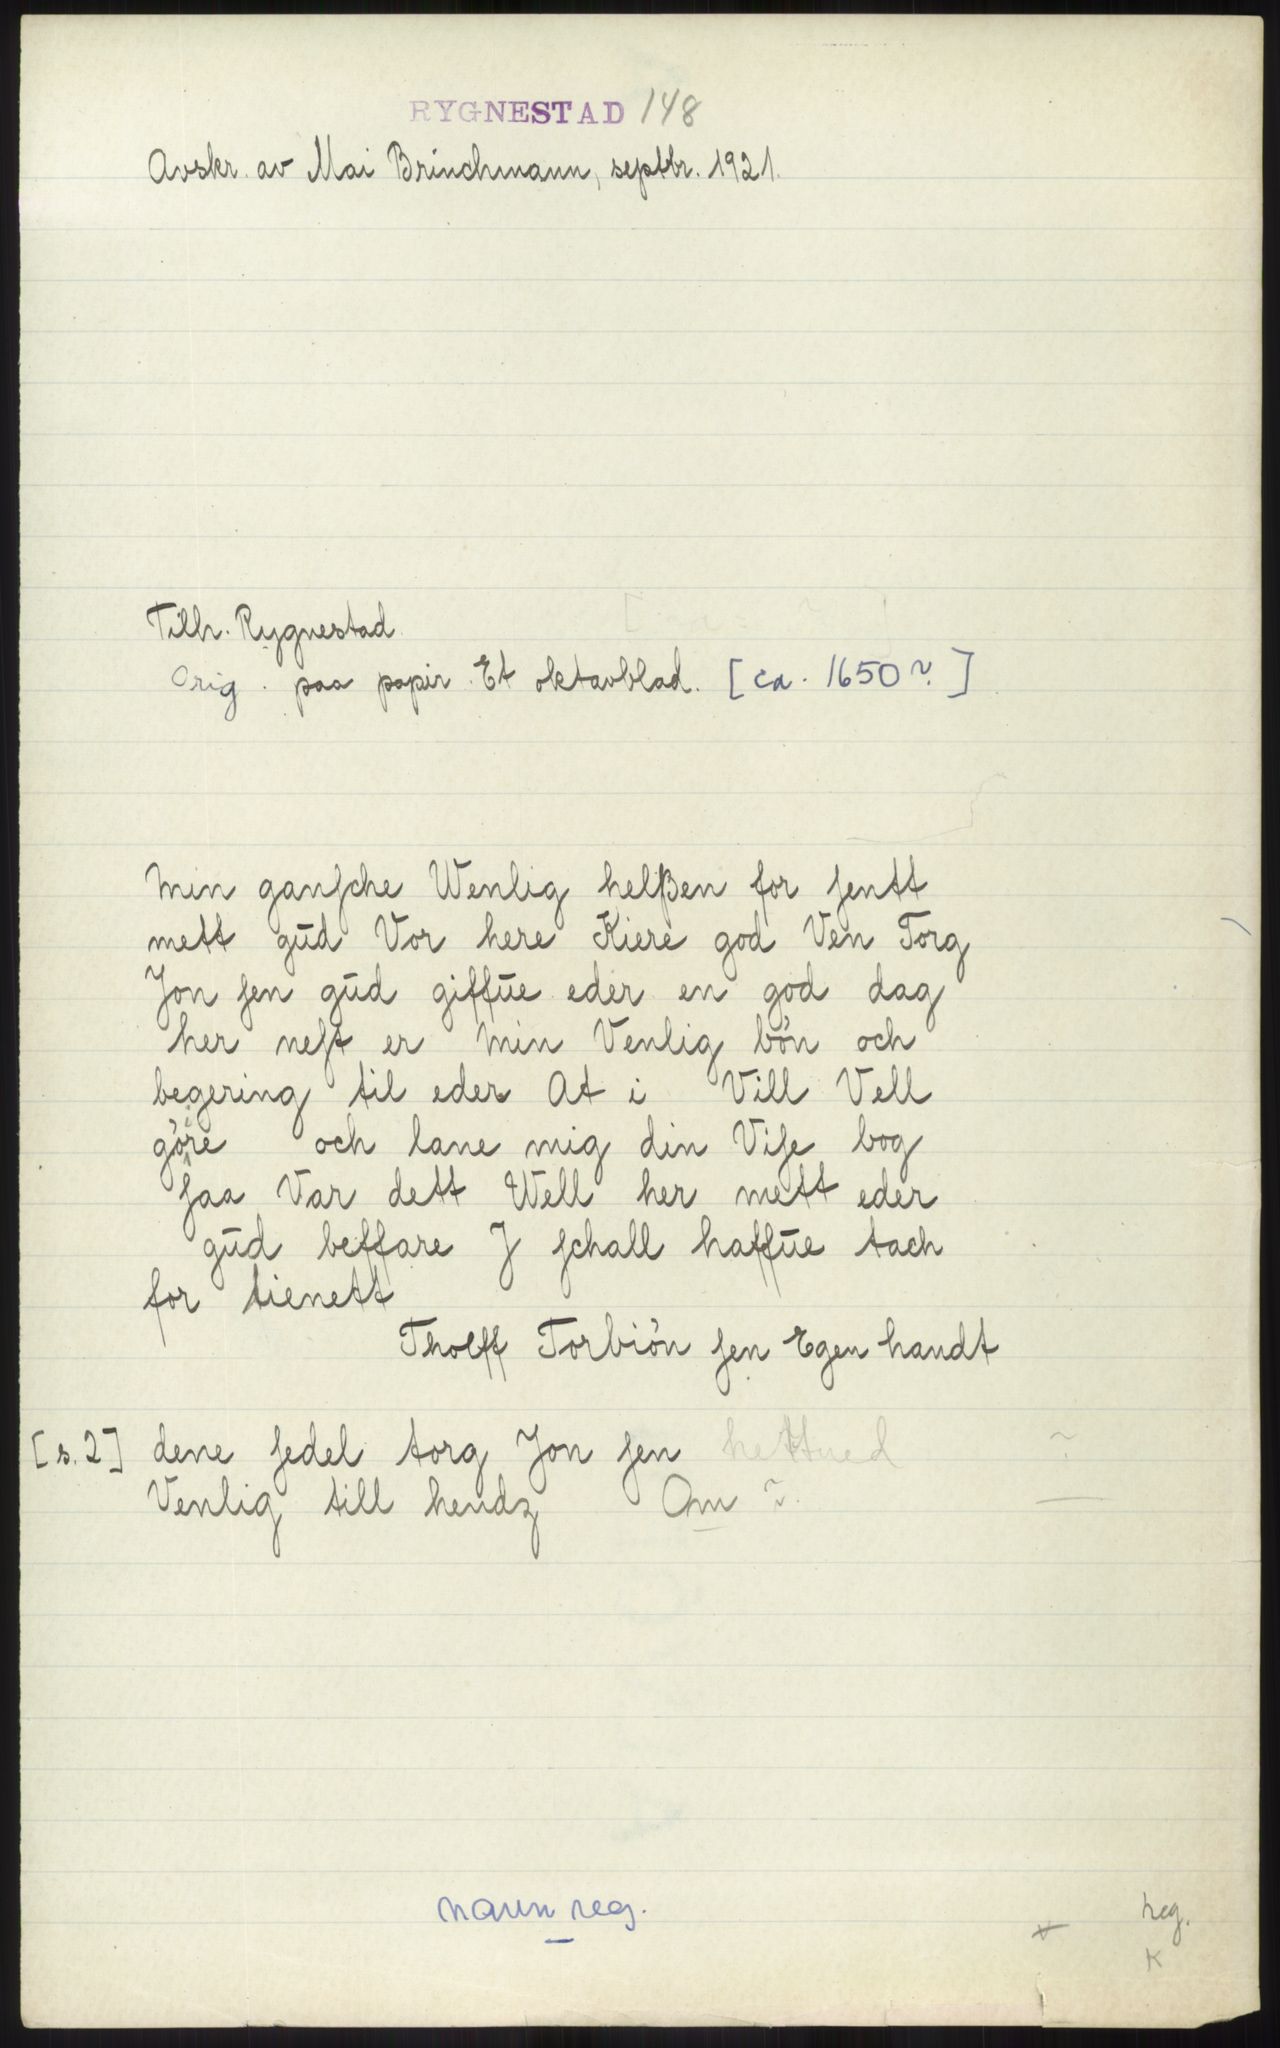 RYGNESTAD 148
Avskr. av Mai Brinchmann, septbr. 1921.
Tilh. Rygnestad
Orig. paa papir. Et oktavblad. [ca. 1650?]
Min ganſche Wenlig helßen for ſentt
mett gŭd Vor here Kiere god Ven Torg
Jon ſen gŭd giffŭe eder en god dag
her neſt er Min Venlig bön och
begering til eder At i Vill Vell
göre och lane mig din Viſe bog
ſaa Var dett Well her mett eder
gŭd beffare J ſchall haffŭe tach
for tienett
Tholff Torbiön ſen Egen handt
[s. 2] dene ſedel torg Jon ſen hettned ?
Venlig till hendz Om ?
navn reg.
reg.
K